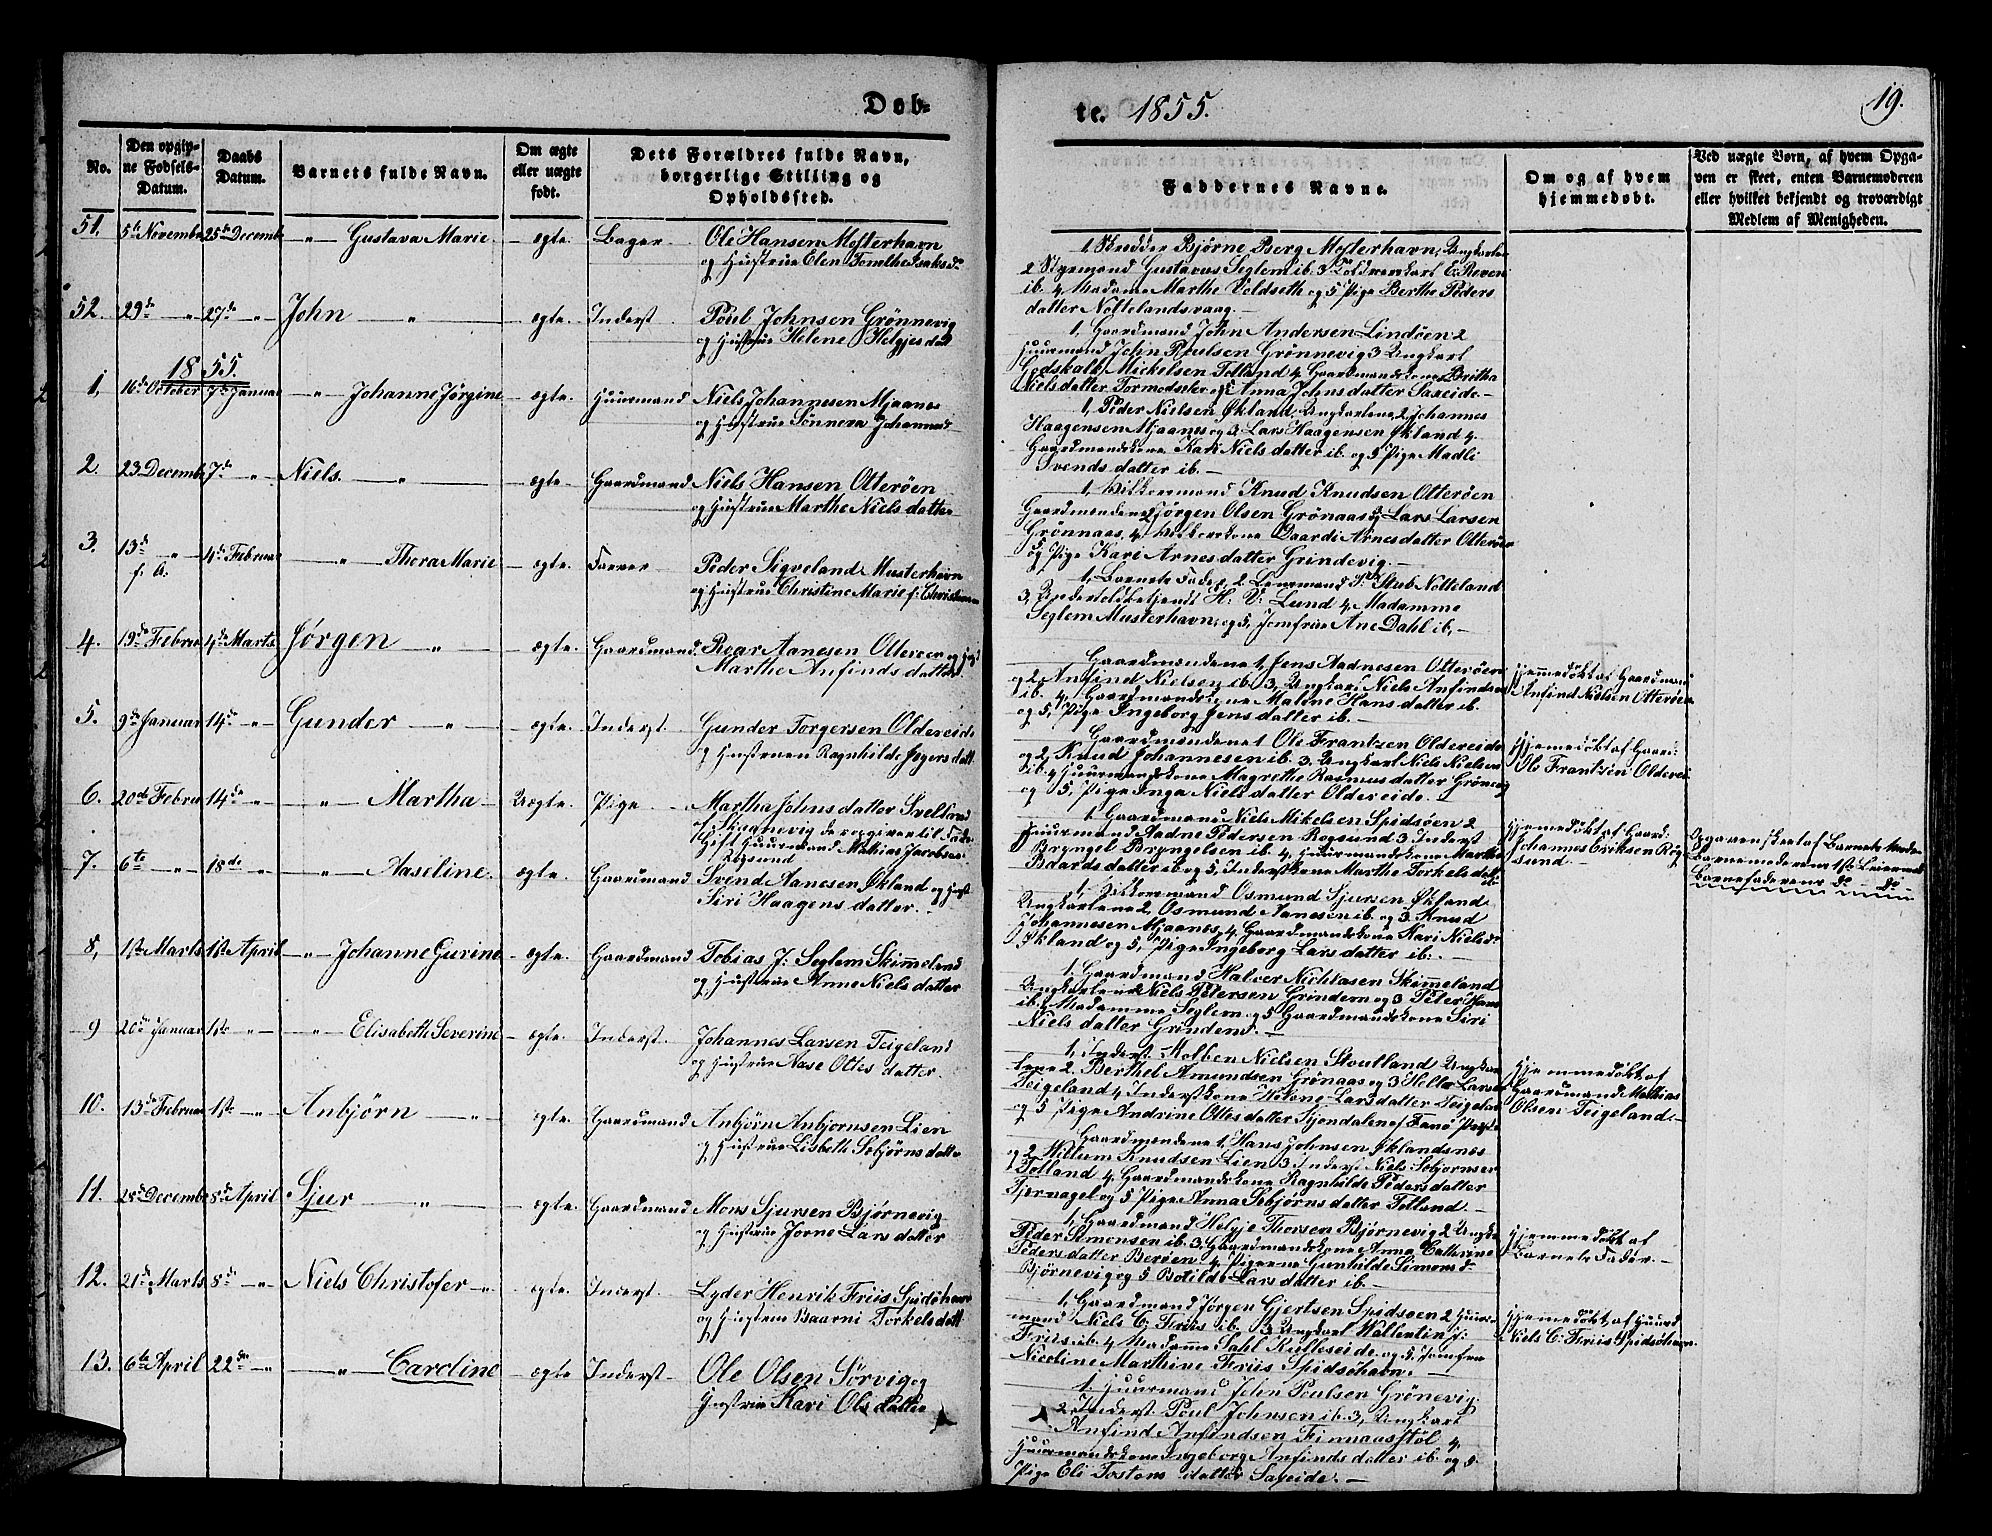 Døb-
te. 1855.
19.
No.
Den opgiv-
ne Fødsels-
Datum.
Daabs
Datum.
Barnets fulde Navn.
Om ægte
eller uægte
født.
Dets Forældres fulde Navn,
borgerlige Stilling og
Opholdssted.
Faddernes Navne.
Om og af hvem
hjemmedøbt.
Ved uægte Børn, af hvem Opga-
ven er skeet, enten Barnemoderen
eller hvilket bekjendt og troværdigt
Medlem af Menigheden.
51. 5te Novembe 25de Decemb — " — Gustava Marie. — ægte. Bager Ole Hansen Mosterhavn
og Hustrue Elen Isaksd
1, Skredder Bjørne Berg Mosterhavn, Ungkarlen
2 Styrmand Gustavus Seglem ib. 3 E. Reven
ib. 4 Madame Marthe Voldseth og 5 Pige Berthe Peders
datter Nottelandsvaag. —
52. 29de " 27de " John — " — ægte. Inderst Poul Johnsen Grønnevig
og Hustrue Helene Helgjes datt
1, Gaardmand John Andersen Lindøen 2
Huurmand John Poulsen Grønnevig 3 Ungkarl
Godskalk Mickelsen Tolland 4, Gaardmandskone Britha
Nielsdatter og 5 Anna Johnsdatter Saxeide. —
1855.
1, 16de October 7de Januar — " — Johanne Jørgine — ægte. Huurmand Niels Johannesen Mjaanes
og Hustrue Sønneva Johannesd
1, Peder Nielsen Økland, Ungkarlene 2 Johannes
Haagensen Mjaanes og 3 Lars Haagensen Økland 4.
Gaardmandskone Kari Niels datter ib. og 5 Pige Madli
Svends datter ib. —
2. 23 Decembe 7de " Niels. — " — ægte. Gaardmand Niels Hansen Otterøen
og Hustrue Marthe Niels datter
1, Knud Knudsen Otterøen
Gaardmændene 2 Jørgen Olsen Grønaas og Lars Larsen
Grønnaas, 4, Daardi Arnesdatter Otterøen
og Pige Kari Arnesdatter Grindevig. —
3. 13de " f. A. 4de Februar — " — Thora Marie — ægte. Farver Peder Sigveland Musterhavn
og Hustrue Christine Marie f. Christensen
1, Barnets Fader, 2 Lensmand Stub Notteland
3, Undertoldbetjendt H: V: Lund 4 Madamme
Seglem Musterhavn, og 5, Jomfrue Ane Dahl ib, —
4. 19de Februa 4de Marts Jørgen — " — ægte. Gaardmand Roar Aanesen Otterøen og Hust
Marthe Anfinds datter
Gaardmændene 1, Jens Aadnesen Otterøen
og 2, Anfind Nielsen ib. 3, Ungkarl Niels Anfindsen
ib. 4, Gaardmandskone Malene Hans datter ib.
og 5, Pige Ingeborg Jens datter ib. —
Hjemmedøbt af Gaardmand
Anfind Nielsen Otterøen
5. 9de Januar 14de " Gunder — " — ægte. Inderst. Gunder Torgersen Oldereide
og Hustruen Ragnhilde datt
Gaardmændene 1 Ole Frantzen Oldereide
og 2, Knud Johannesen ib. 3. Ungkarl Niels Nielsen
ib. 4 Huurmandskone Magrethe Rasmus datter Grønevig
og 5, Pige Inga Niels datter Oldereide. —
Hjemmedøbt af Gaard:
Ole Frantzen Olderei
6. 20de Februa 14de " — " — Martha — Uægte. Pige. Martha Johns datter Sveland
Skaanevig der opgiver til Fader
Gift Huurmand Mathias Jacobsen
Rogsund
1. Gaardmand Niels Mikelsen Spidsøen 2
Huurmand Aadne Pedersen Rogsund 3 Inderst
Bryngel Bryngelsen ib. 4, Huurmandskone Marthe
Baards datter ib og 5, Inderstkone Marthe Torkels datt
ib.
Hjemmedøbt af Gaard:
Johannes Eriksen Rog
sund. —
Opgaven skeet af Barnets Moder
Barnemoderens 1ste Leiermaal
Barnefaderens do — do —
7. 6te " 18de " — " — Aaseline. ægte. Gaardmand Svend Aanesen Økland og Hust
Siri Haagens datter. —
1, Osmund Sjursen Økland
Ungkarlene 2, Osmund Aanesen ib. og 3. Knud
Johannesen Mjaanes, 4, Gaardmandskone Kari Nielsd.
Økland og 5, Pige Ingeborg Lars datter ib. —
8, 1ste Marts 1ste April — " — Johanne Gurine ægte. Gaardmand Tobias J: Seglem Skimmeland
og Hustrue Anne Niels datter
1. Gaardmand Halver Nicklasen Skimmeland
Ungkarlene Niels Petersen Grindem og 3 Peter Hans
ib. Madamme Seglem og 5 Gaardmandskone Siri
Niels datter Grindem. —
9 20de Januar 1ste " — " — Elisabeth Severine — ægte. Inderst. Johannes Larsen Teigeland
og Hustrue Aase Ottes datter.
1, Inderst Kolben Nielsen Stoutland Ungkar
lene 2. Berthel Amundsen Grønaas og 3 Larsen
Teigeland 4, Inderstkone Helene Lars datter Teigeland
og 5 Pige Andrine Ottes datter
Hjemmedøbt af
Gaardmand Mathias
Olsen Teigeland. —
10. 13de Februar 1ste " Anbjørn — " ægte. Gaardmand Anbjørn Anbjørnsen Lien
og Hustrue Lisbeth Sebjørns datte
Gaardmændene 1, Hans Johnsen Øklandsnes
og 2, Willum Knudsen Lien 3 Inderst Niels Sebjørnsen
Totland 4 Gaardmandskone Ragnhilde Peders datter
Tjernagel og 5 Pige Anna Sebjørns datter Totland. —
11. 28de Decembe 8de April Sjur — " — ægte. Gaardmand Mons Sjursen Bjørnevig
og Hustrue Jorne Lars datter
1, Gaardmand Helgje Thorsen Bjørnevig 2 Ungka
Peder Simensen ib. 3, Gaardmandskone Anna Cathrine
Peders datter Berøen 4, Pigerne Gunhilde Simonsd.
Bjørnevig og 5 Botilde Lars datter ib. —
Hjemmedøbt af
Barnets Fader. —
12. 21de Marts 8de " Niels Christofer — " ægte. Inderst. Lyder Henrik Friis Spidsøhavn
og Hustrue Baarni Torkels datt
1, Gaardmand Jørgen Gjertsen Spidsøen 2 Huur
mand Niels C. Friis ib. 3, Ungkarl Wallentin
Friis ib. 4, Madame Dahl Kulleseide og 5. Jomfru
Nicoline Marthine Friis Spidsøhavn. —
Hjemmedøbt af Huurd
Niels C. Friis Spidsøhavn.
13. 6te April 22de " — " — Caroline — ægte Inderst Ole Olsen Sørvig og
Hustrue Kari Ols datter
1, Huurmand John Poulsen Grønevig
2 Inderst. Poul Johnsen ib. 3, Ungkarl
Anfind Anfindsen Finnaasstøl 4.
Huurmandskone Ingeborg Anfinds datter ib. og 5.
Pige Eli Tostens datter Saxeide. —